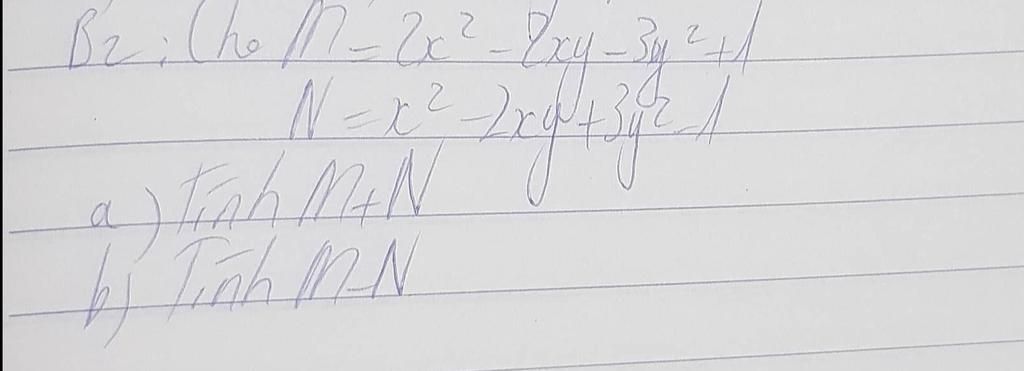 B2: Cho M = 2x² - 2xy - 3y² + 1
N = x² - 2xy + 3y² - 1
a) Tính M+N
b) Tính M-N